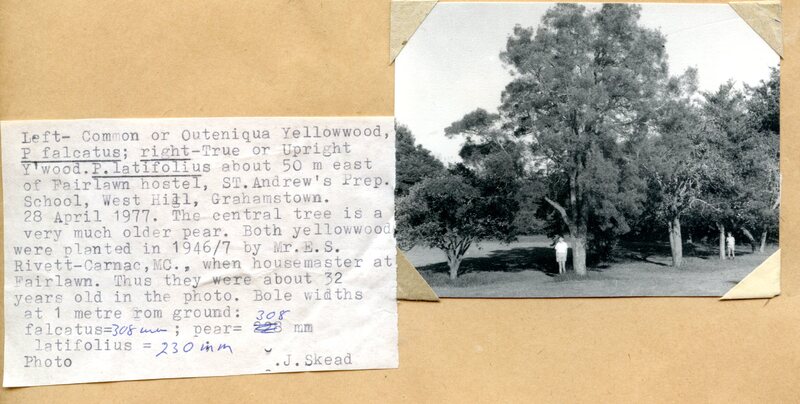 Left- Common or Outeniqua Yellowwood,
P falcatus; right-True or Upright
Y'wood.P.latifolius about 50 m east
of Fairlawn hostel, ST.Andrew's Prep.
School, West Hill, Grahamstown.
28 April 1977. The central tree is a
very much older pear. Both yellowwood
were planted in 1946/7 by Mr.E.S.
Rivett-Carnac,MC., when housemaster at
Fairlawn. Thus they were about 32
years old in the photo. Bole widths
at 1 metre rom ground: 308
falcatus=308mm; pear= mm
latifolius = 230mm
Photo .J.Skead